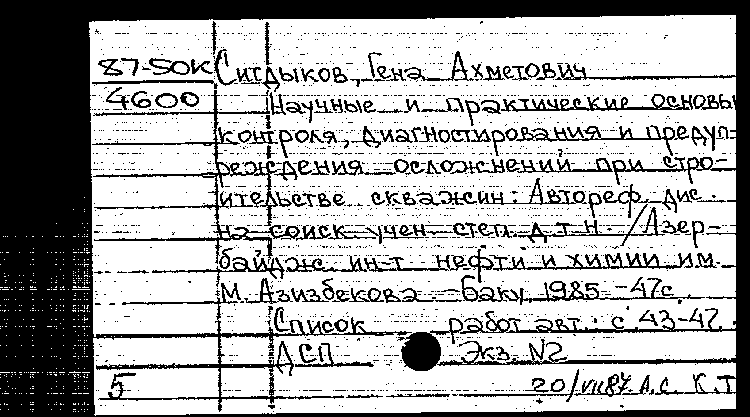 87-50К Ситдыков, Гена Ахметович
4600 Научные и практические основы
контроля, диагностирования и предуп-
реждения осложнений при стро-
ительстве скважин: Автореф. дис.
на соиск. учен. степ. д.т.н. /Азер-
байдж. ин-т нефти и химии им.
М. Азизбекова. – Баку, 1985. – 47с.
Список работ авт.: с. 43-47.
ДСП Экз. N2
5 20/VII87 А.С. К.Т